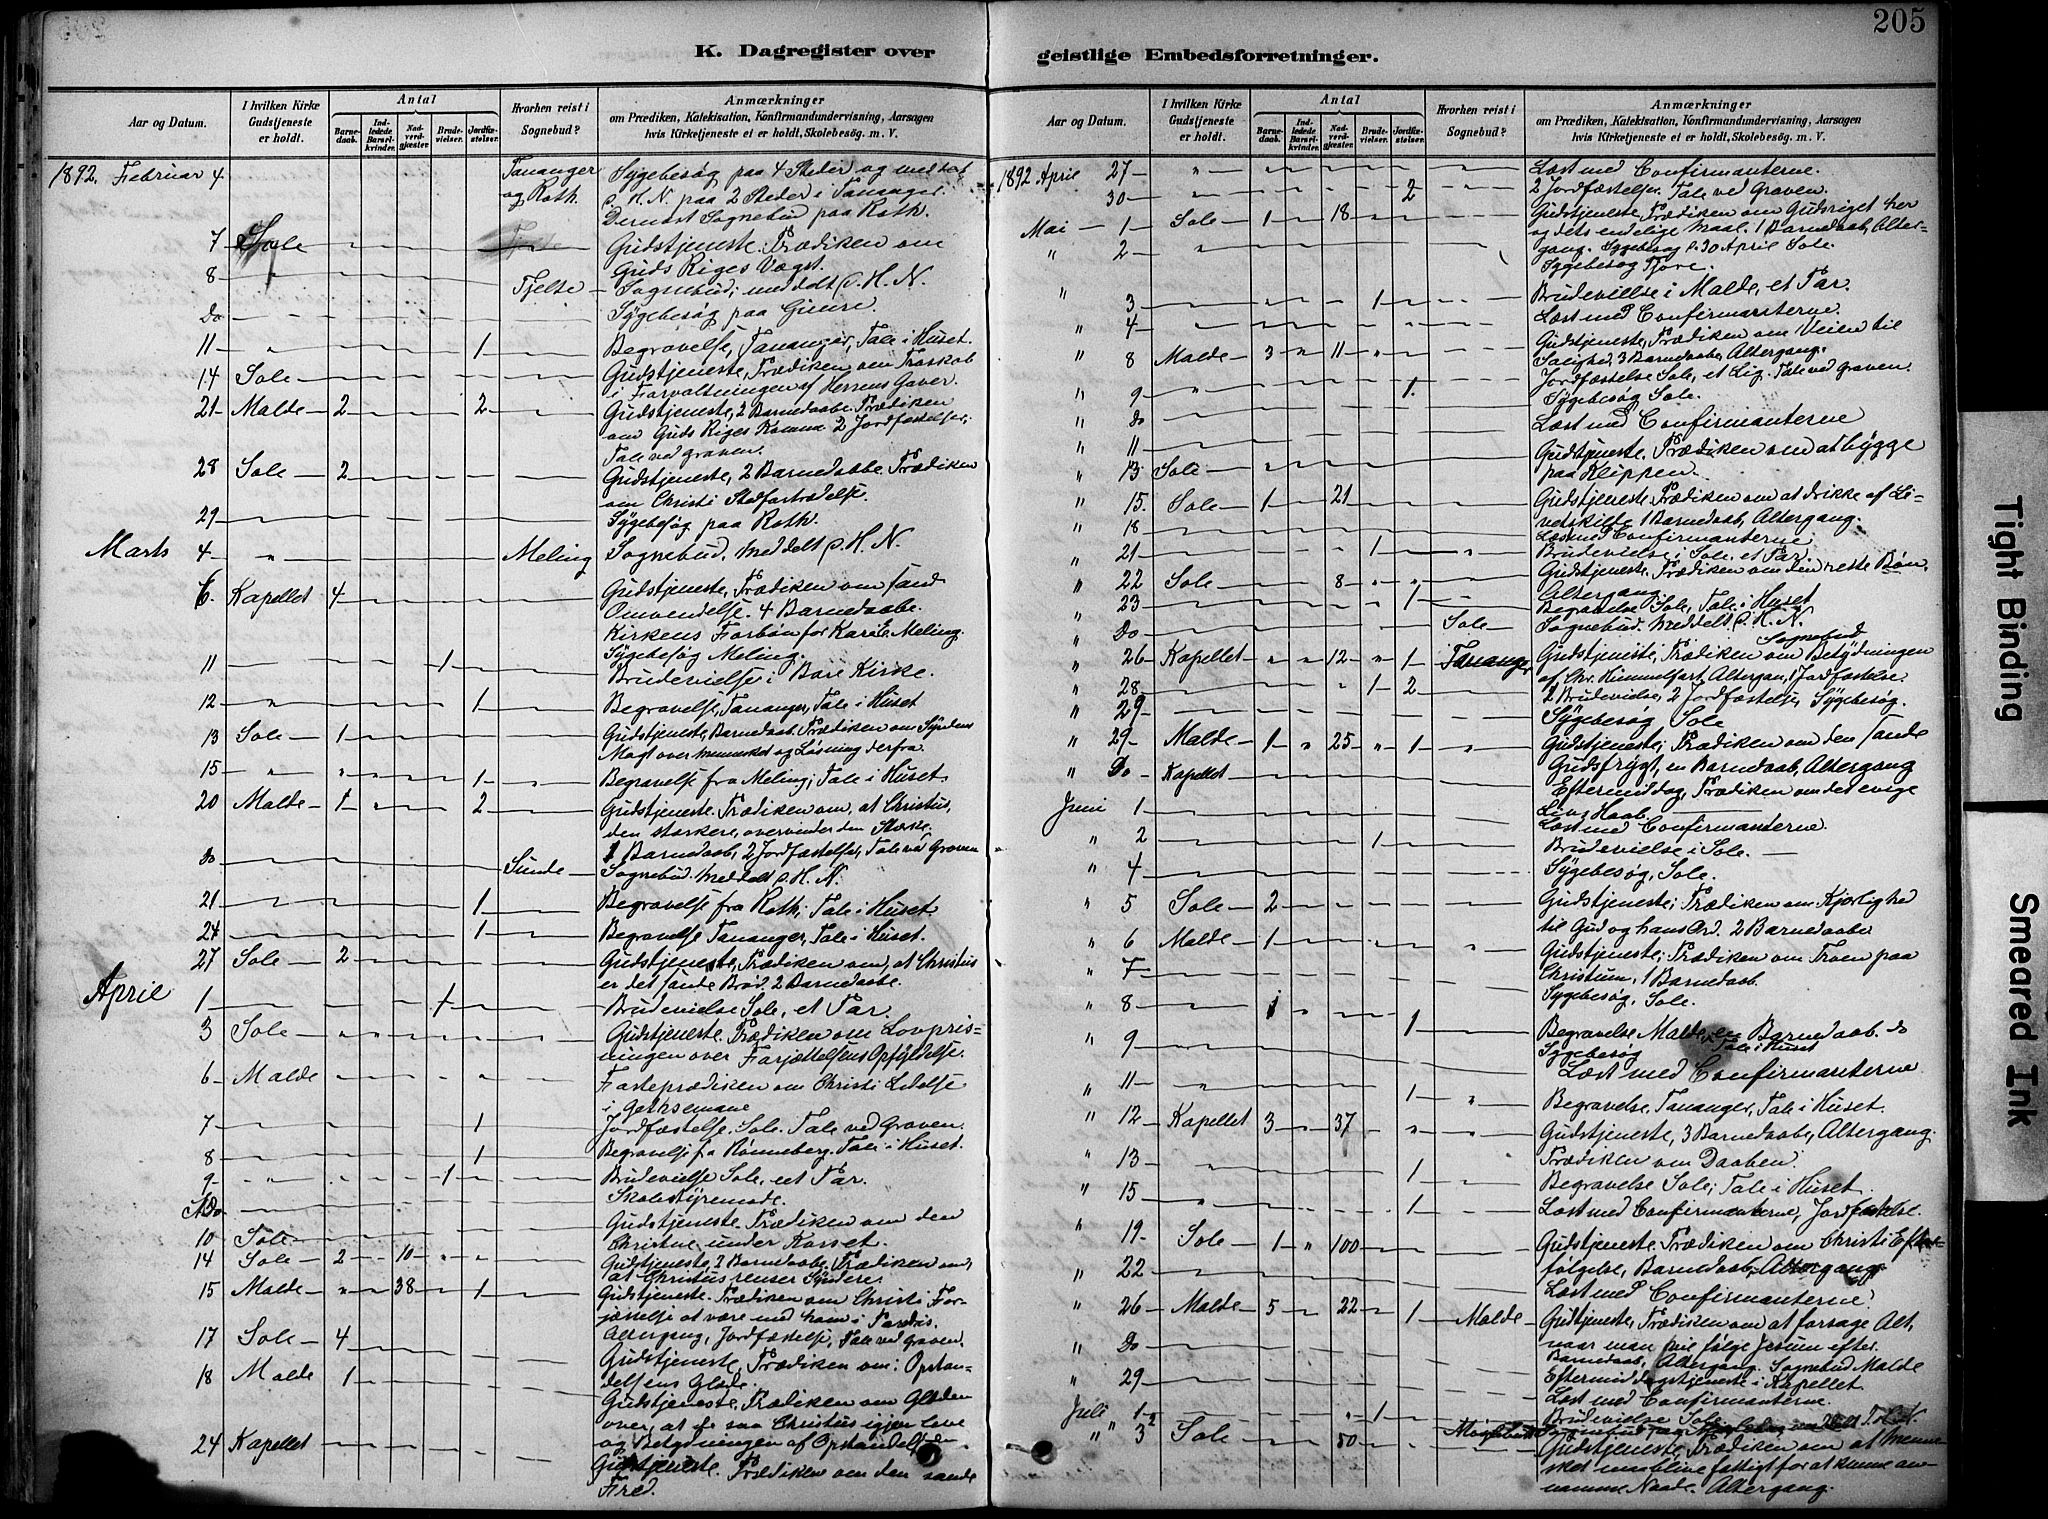 K. Dagregister over
Aar og Datum.
I hvilken Kirke Gudstjeneste er holdt.
Antal
Barnedaab.
Indledede Barselkvinder.
Nadverdgjæster.
Brudevielser.
Jordfæstelser.
Hvorhen reist i Sognebud?
Anmærkninger
om Prædiken, Katekisation, Konfirmandundervisning, Aarsagen
hvis Kirketjeneste ei er holdt, Skolebesøg. m. V.
1892. Februar 4 Tananger og Roth. Sygebesøg paa 4 Steder og meddelt
s. H. N. paa 2 Steder i Tananger.
Dernæst Sognebud paa Roth.
7 Sole Gudstjeneste. Prædiken om
Guds Riges Væxt.
8 Tjelte Sognebud; meddelt s. H. N.
Do Sygebesøg paa
11 1 Begravelse, Tananger, Tale i Huset.
14 Sole Gudstjeneste, Prædiken om Troskab
i Forvaltningen af Herrens Gaver.
21 Malde 2 2 Gudstjeneste, 2 Barnedaabe. Prædiken
om Guds Riges Komme 2 Jordfæstelser,
Tale ved graven.
28 Sole 2 Gudstjeneste, 2 Barnedaabe. Prædiken
om Christi Stedfortrædelse.
29 Sygebesøg paa Roth.
Marts 4 " Meling Sognebud. Meddelt s. H. N.
6. Kapellet 4 Gudstjeneste, Prædiken om sand
Omvendelse. 4 Barnedaabe.
Kirkens Forbøn for Kari E. Meling.
Sygebesøg Meling.
11 1 Brudevielse i Bore Kirke.
12 " 1 Begravelse, Tananger, Tale i Huset
13 Sole 1 Gudstjeneste, Barnedaab. Prædiken om Syndens
Magt over Mennesket og Løsning derfra.
15 " 1 Begravelse fra Meling; Tale i Huset
20 Malde 1 2 Gudstjeneste. Prædiken om, at Christus,
den stærkere, overvinder den Stærke.
1 Barnedaab, 2 Jordfæstelser, Tale ved Graven
Do Sunde Sognebud. Meddelt s. H. N.
21 1 Begravelse fra Roth; Tale i Huset
24 1 Begravelse Tananger, Tale i Huset.
27 Sole 2 Gudstjeneste, Prædiken om, at Christus
er det sande Brød. 2 Barnedaabe.
April 1 1 Brudevielse Sole, et Par.
3 Sole Gudstjeneste. Prædiken om Lovpris-
ningen over Forjættelsens Opfyldelse.
6 Malde Fasteprædiken om Christi Lidelse
i Gethsemane
7 1 Jordfæstelse. Sole. Tale ved Graven.
8 1 Begravelse fra Rønneberg. Tale i Huset.
9 1 Brudevielse Sole, eet Par.
Do Skolestyremøde.
10 Sole Gudstjeneste. Prædiken om den
Christne under Korset.
14 Sole 2 10 Gudstjeneste, 2 Barnedaabe. Prædiken om,
at Christus renser Syndere.
15 Malde 38 1 Gudstjeneste. Prædiken om Christi For-
jættelse at være med ham i Paradis.
Altergang, Jordfæstelse, Tale ved graven.
17 Sole 4 Gudstjeneste, Prædiken om: Opstan-
delsens Glæde.
18 Malde 1 Gudstjeneste. Prædiken om Glæden
over, at se saa Christus igjen leve
og Betydningen af Opstandelsen
24 Kapellet Gudstjeneste. Prædiken om den sande
Fred.
geistlige Embedsforretninger.
205
Aar og Datum.
I hvilken Kirke Gudstjeneste er holdt.
Antal
Barnedaab.
Indledede Barselkvinder.
Nadverdgjæster.
Brudevielser.
Jordfæstelser.
Hvorhen reist i Sognebud?
Anmærkninger
om Prædiken, Katekisation, Konfirmandundervisning, Aarsagen
hvis Kirketjeneste ei er holdt, Skolebesøg. m. V.
1892 April 27 " Læst med Confirmanterne.
30 " 2 2 Jordfæstelser. Tale ved Graven.
Mai 1 Sole 1 18 Gudstjeneste, Prædiken om Gudsriget her
og dets endelige Maal. 1 Barnedaab, Alter-
gang. Sygebesøg d. 30 April Sole.
" 2 " Sygebesøg Tjore.
" 3 1 Brudevielse i Malde, et Par.
4 Læst med Confirmanterne.
" 8 Malde 3 11 Gudstjeneste, Prædiken om Veien til
Salighed, 3 Barnedaabe, Altergang.
" 9 " 1. Jordfæstelse Sole, et Lig. Tale ved graven.
" Do Sygebesøg Sole.
" 11 Læst med Confirmanterne
" 13 Sole Gudstjeneste. Prædiken om at bygge
paa Klippen.
" 15. Sole 1 21 Gudstjeneste. Prædiken om at drikke af Li-
vetskilde 1 Barnedaab, Altergang.
" 18 Læst med Confirmanterne
" 21 1 Brudevielse i Sole, et Par.
" 22 Sole 8 Gudstjeneste. Prædiken om den rette Bøn.
Altergang
" 23 1 Begravelse Sole, Tale i Huset
" Do Sole Sognebud. Meddelt s. H. N.
" 26 Kapellet 12 1 Tananger Sognebud
Gudstjeneste, Prædiken om Betydningen
af Chr. Himmelfart, Altergan, 1 Jordfæstelse
" 28 1 2 2 Brudevielse, 2 Jordfæstelse, Sygebesøg.
" 29 Sygebesøg Sole
" 29 Malde 1 25 1 Gudstjeneste; Prædiken om den sande
Gudsfrygt, en Barnedaab, Altergang
" Do Kapellet Eftermiddag, Prædiken om det evige
Livs Haab.
Juni 1 Læst med Confirmanterne.
" 2 1 Brudevielse i Sole.
" 4 Sygebesøg, Sole.
" 5 Sole 2 Gudstjeneste; Prædiken om Kjærlighed
til Gud og hans Ord. 2 Barnedaabe
" 6 Malde 1 Gudstjeneste; Prædiken om Troen paa
Christum, 1 Barnedaab.
" 7 Sygebesøg, Sole.
" 8 1 1 Begravelse Malde, en Barnedaab. do
Tale i Huset
" 9 Sygebesøg
Læst med Confirmanterne
" 11 " 1 Begravelse, Tananger, Tale i Huset.
" 12 Kapellet 3 37 Gudstjeneste, 3 Barnedaabe, Altergang.
Prædiken om Daaben.
" 13 1 Begravelse Sole; Tale i Huset.
" 15 1 Læst med Confirmanterne, Jordfæstelse.
" 19. Sole 1 100 Gudstjeneste. Prædiken om Christi Efter-
følgelse, Barnedaab, Altergang.
" 22 Læst med Confirmanterne.
" 26 Malde 5 22 1 Malde Gudstjeneste, Prædiken om at forsage Alt,
naar man vil følge Jesum efter.
Barnedaab, Altergang. Sognebud Malde
" Do Eftermiddagstjeneste i Kapellet
" 29 Læst med Confirmanterne.
Juli 1 1 Brudevielse Sole
2
" 3 Sole 50 Gudstjeneste Prædiken om at Menne-
sket maa blive fattigt for at kunne an-
namme Naade. Altergang.
Tight Binding
Smeared Ink